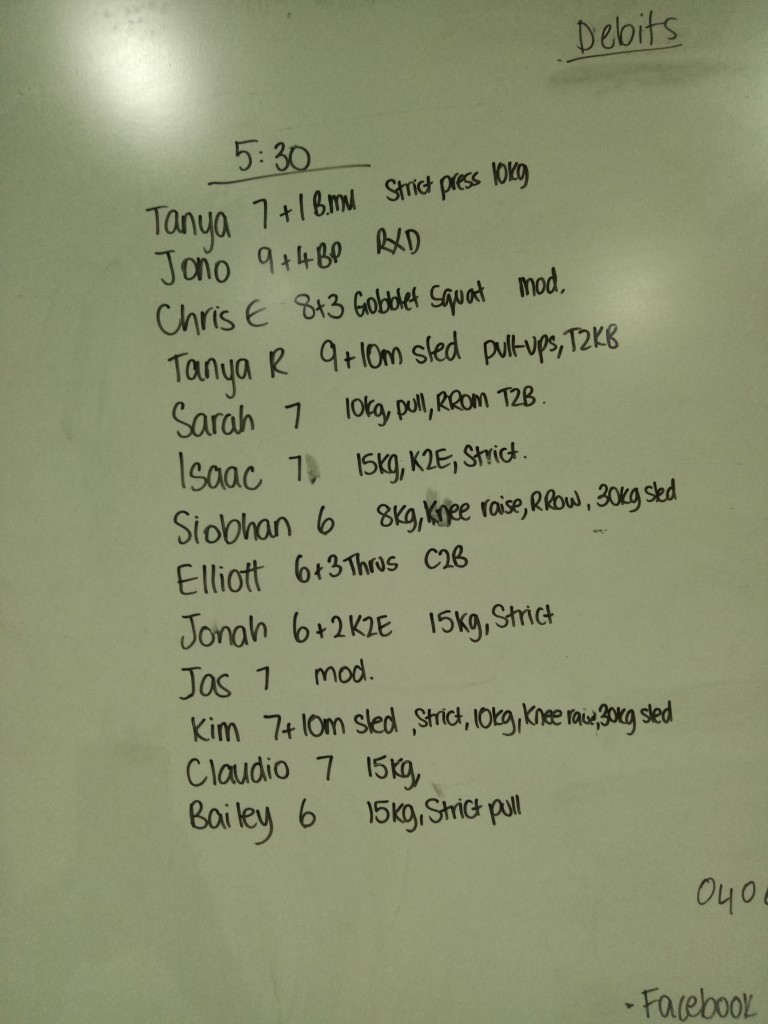 Debits
5:30
Tanya 7+1 B.mu Strict press 10kg
Jono 9+4BP RXD
Chris E 8+3 Gobblet Squat mod.
Tanya R 9+10m sled pull-ups, T2KB
Sarah 7 10kg, pull, RRom T2B.
Isaac 7. 15kg, K2E, Strict.
Siobhan 6 8kg, Knee raise, RRow, 30kg sled
Elliott 6+3 Thrus C2B
Jonah 6+2K2E 15kg, Strict
Jas 7 mod.
Kim 7+10m sled, Strict, 10kg, Knee raise, 30kg sled
Claudio 7 15kg,
Bailey 6 15kg, Strict pull
040
- Facebook